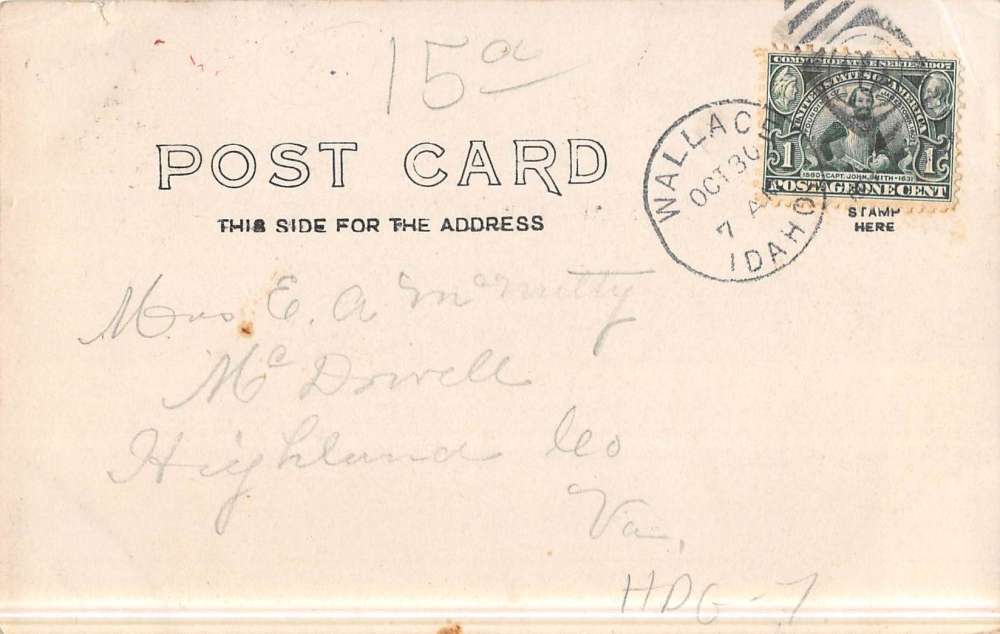 15a
POST CARD
THIS SIDE FOR THE ADDRESS
COMMEMORATIVE SERIES 1907
UNITED STATES OF AMERICA
1 1
1580 · CAPT. JOHN SMITH · 1631
POSTAGE ONE CENT
WALLACE
OCT 30
7 A
IDAHO
STAMP
HERE
Mrs E. A. McNulty
Mc Dowell
Highland Co
Va.
HDG - 7